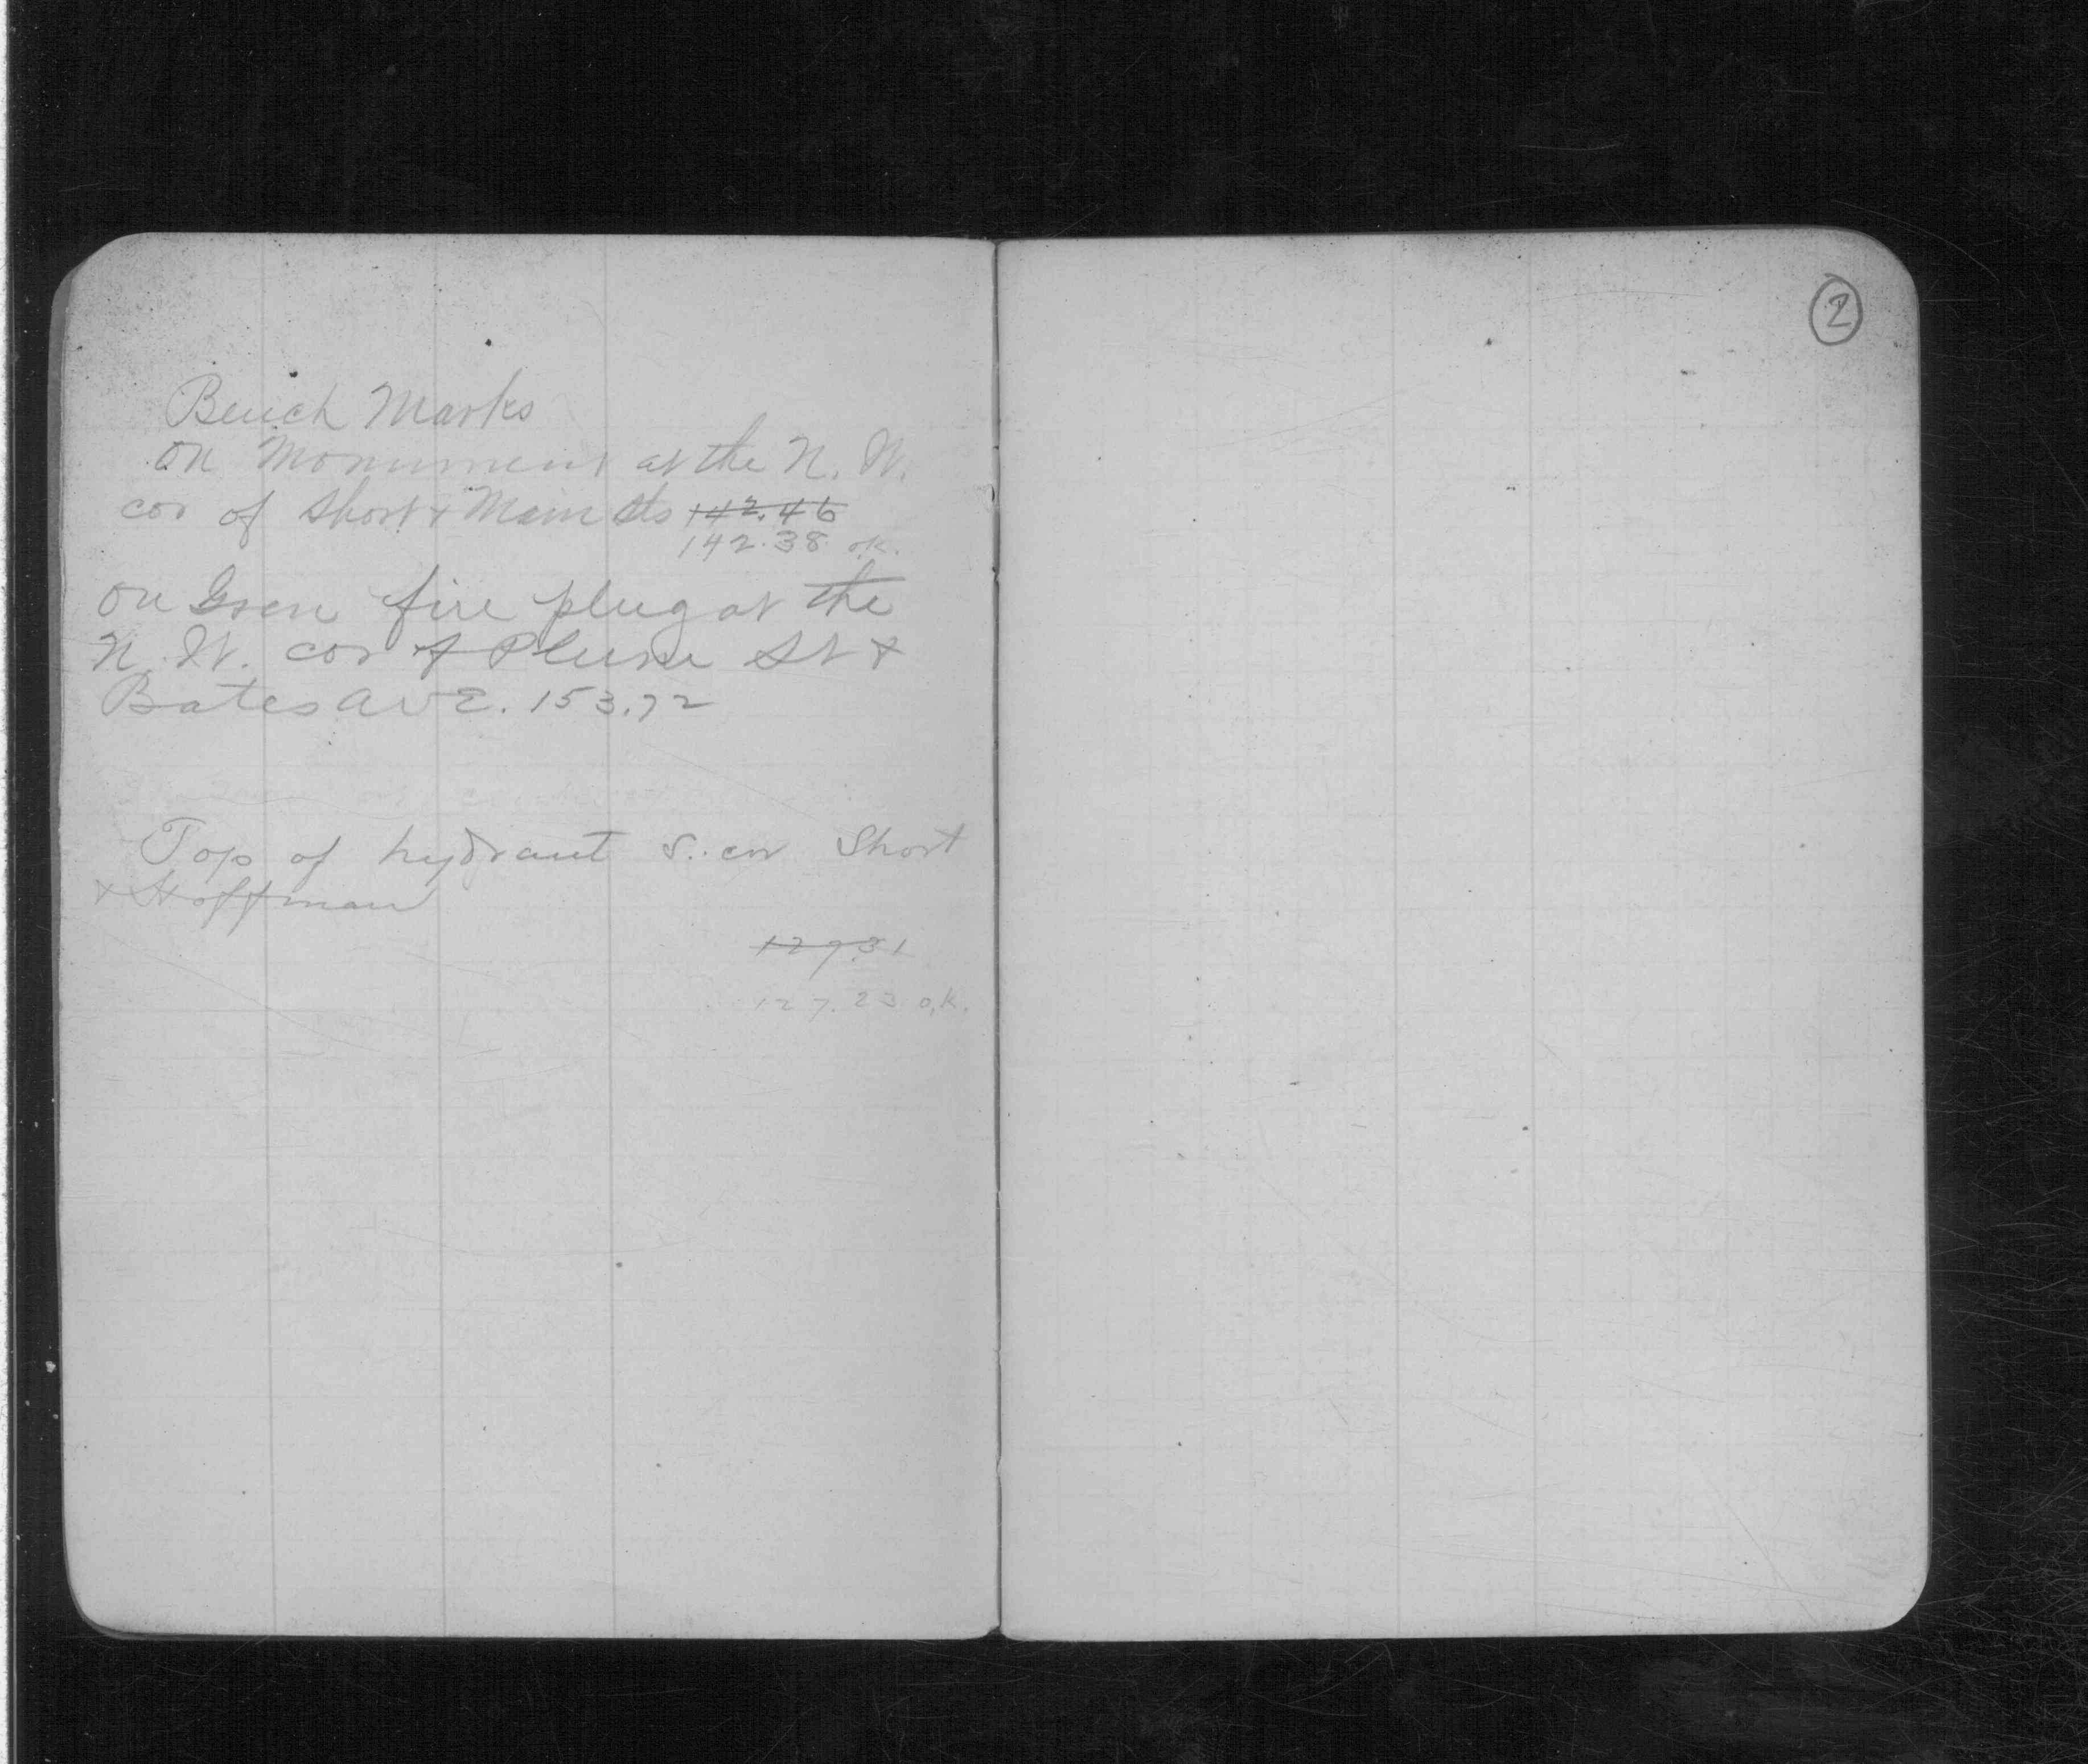 Bench Marks
on Monument at the N. W.
cor of Short & Main Sts 142.46
142.38 ok.
on Green fire plug at the
N. W. cor of Plum St &
Bates AVE. 153.72
Top of hydrant S. cor Short
& Hoffman
127.31
127.23 o.k.
2